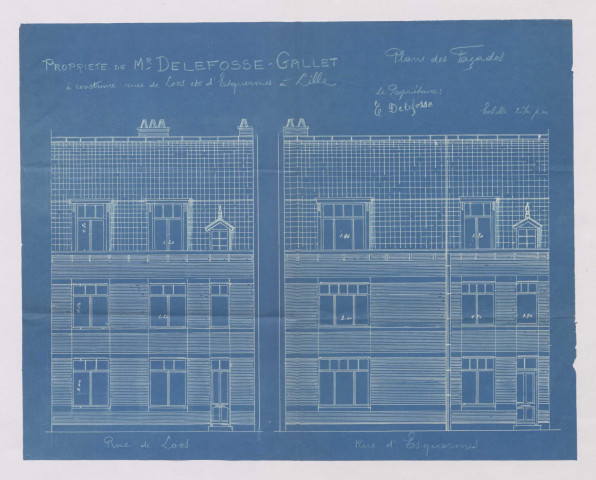 PROPRIETE DE Mr DELEFOSSE-GALLET
à construire rues de Loos et d'Esquermes à Lille
Plans des Façades
Le Propriétaire:
E Delefosse
Echelle
Rue de Loos
Rue d'Esquermes